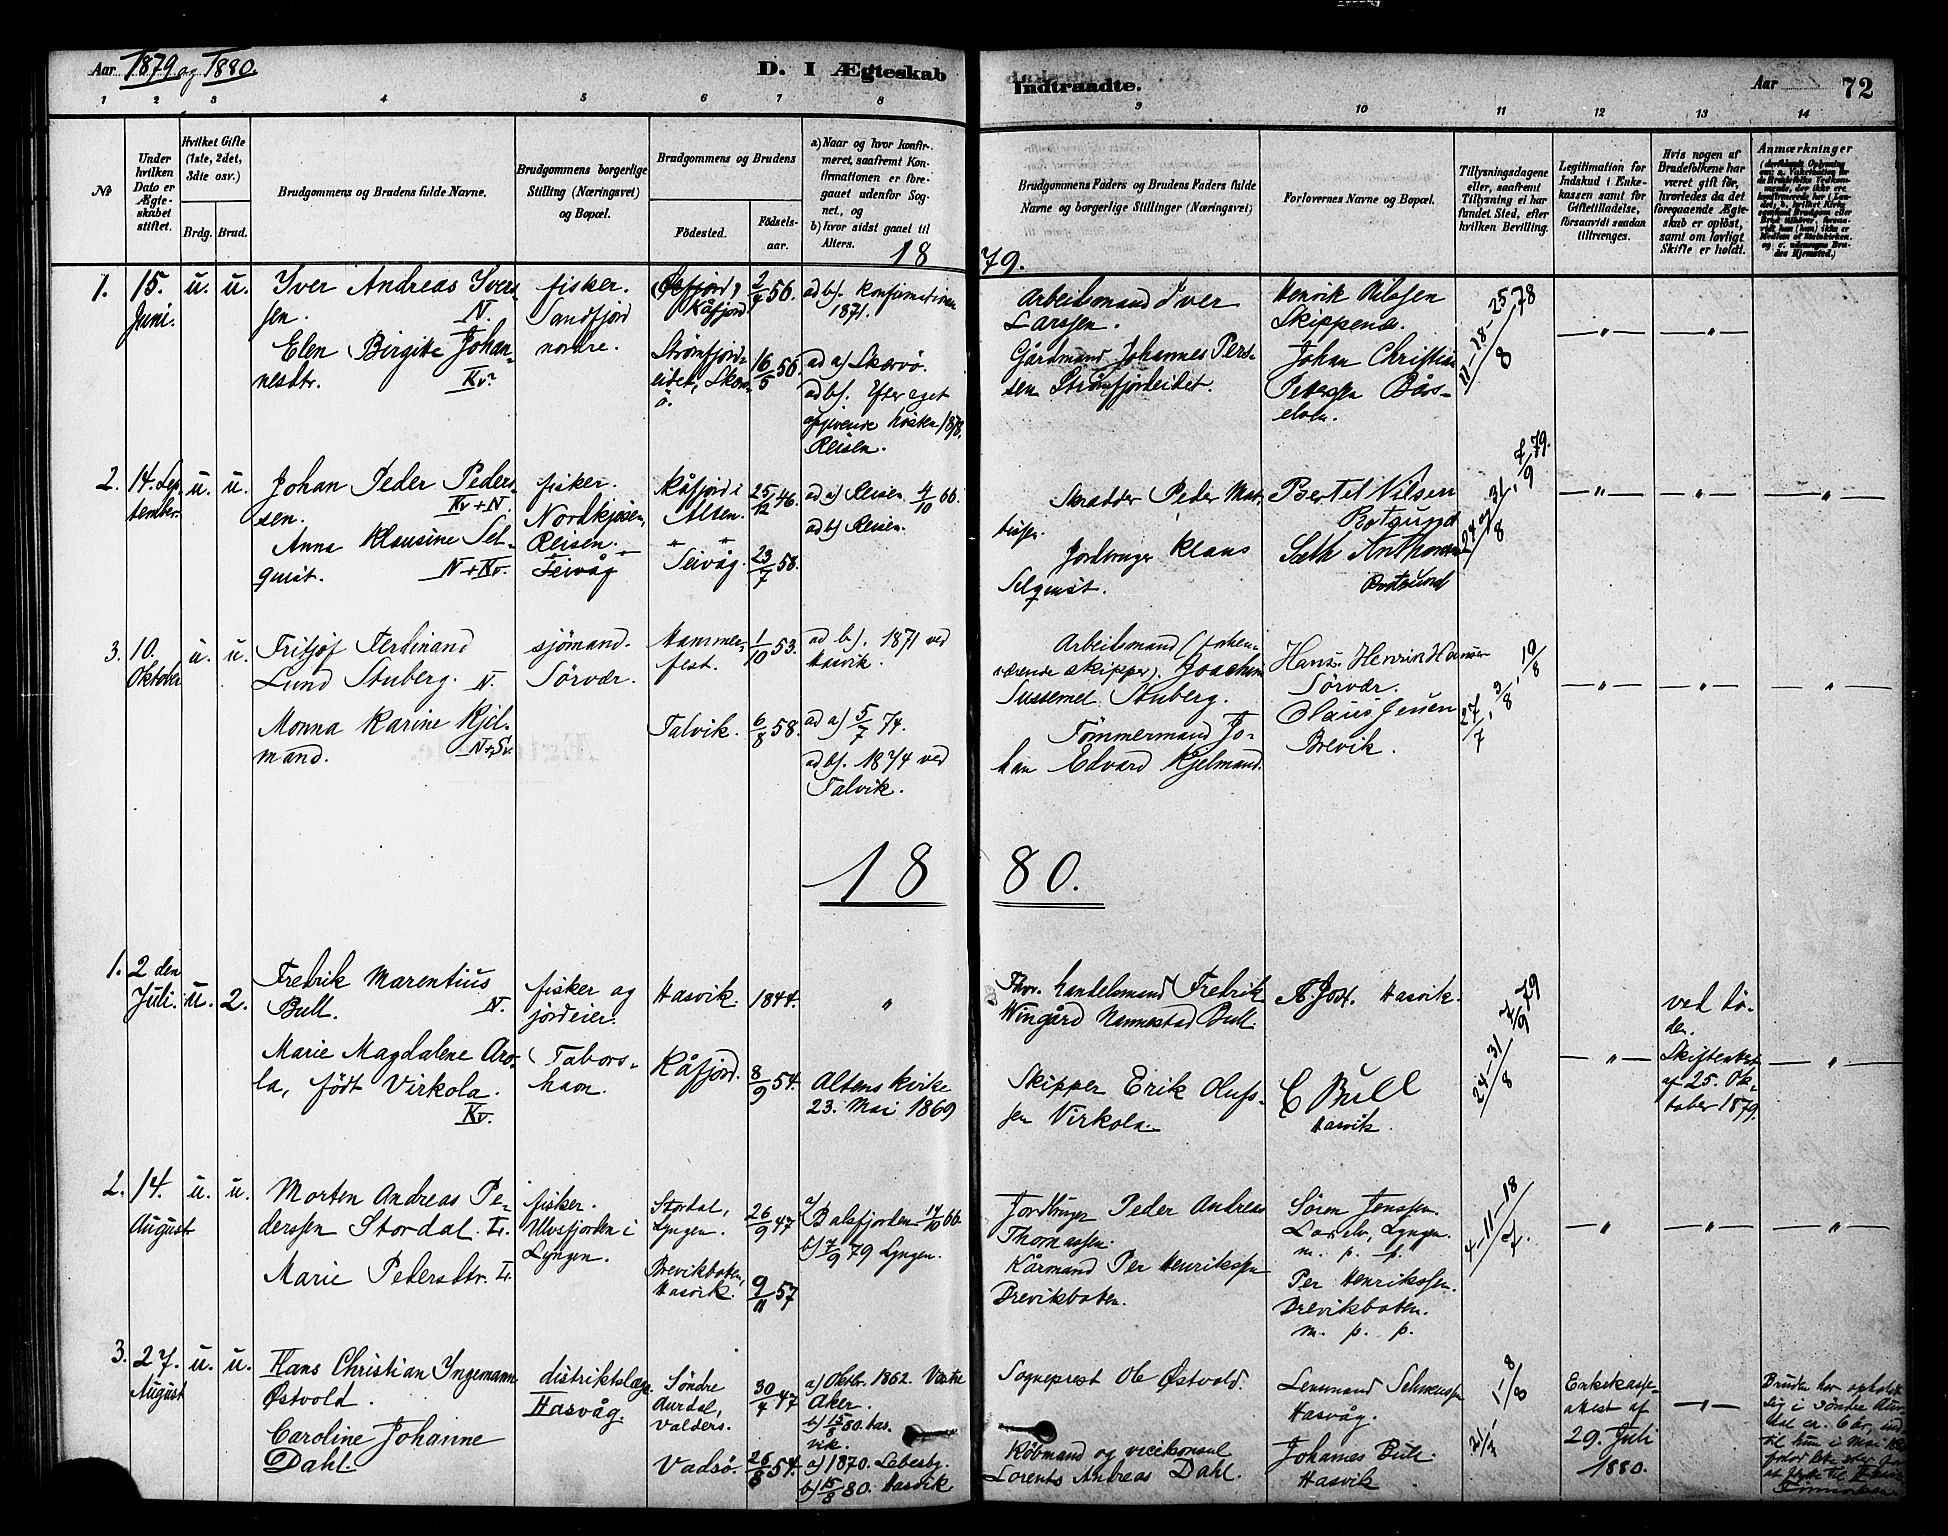 Aar 1879 og 1880.
D. I Ægteskab
Indtraadte.
Aar
72
1 2 3 4 5 6 7 8 9 10 11 12 13 14
No
Under hvilken Dato er Ægteskabet stiftet.
Hvilket Gifte (1ste, 2det, 3die osv.)
Brdg. Brud.
Brudgommens og Brudens fulde Navne.
Brudgommens borgerlige Stilling (Næringsvei) og Bopæl.
Brudgommens og Brudens
Fødested.
Fødselsaar.
a) Naar og hvor konfirmeret, saafremt Konfirmationen er foregaaet udenfor Sognet, og
b) hvor sidst gaaet til Alters.
Brudgommens Faders og Brudens Faders fulde Navne og borgerlige Stillinger (Næringsvei)
Forlovernes Navne og Bopæl.
Tillysningsdagene eller, saafremt Tillysning ei har fundet Sted, efter hvilken Bevilling.
Legitimation for Indskud i Enkekassen samt for Giftetilladelse, forsaavidt saadan tiltrænges.
Hvis nogen af Brudefolkene har været gift før, hvorledes da det foregaaende Ægteskab er opløst, samt om lovligt Skifte er holdt.
Anmærkninger
1879.
1. 15. Juni. u. u.
Iver Andreas Iversen. N.
fisker. Sandfjord nordre.
Kåfjord 2/4 56.
ad b). Konfirmationen 1871.
Arbeidsmand Iver Larssen.
Henrik Nilssen Skippernæs.
11-18-25/8 78
Elen Birgitte Johannesdtr. Kv.
Strømfjordeidet, Skervö.
16/5 56.
ad a) Skervö.
ad b). Efter eget opgivende hösten 1878. Reisen.
Gårdmand Johannes Perssen Strömfjordeidet.
Johan Christian Petersen Bårselven.
2. 14. September. u. u.
Johan Peder Pederssen. Kv + N.
fisker. Nordkjosen, Reisen.
Kåfjord i Alten.
25/12 46.
ad a) Reisen 4/10 66.
ad b) Reisen.
Skrædder Peder
Bertel Nilsen
24 og 31/8, 7/9 79.
Anna Klausine Selquist. N + Kv.
Seivåg
Seivåg. 23/7 58.
Jordbruger Klaus Selquist.
Seth Anthonsen
3. 10. Oktober u. u.
Fritjof Ferdinand Lund Stuberg. N.
sjömand. Sörvær.
Hammerfest. 1/10 53.
ad b). 1871 ved Hasvik.
Arbeidsmand (forhenværende skipper). Joachim Sussemel Stuberg.
Hans Henrik Hansen Sörvær.
27/7, 3/8, 10/8
Monna Karine Kjelmand. N+Kv.
Talvik. 6/8 58.
ad a) 5/7 74.
ad b). 1874 ved Talvik.
Tömmermand Johan Edvard Kjelmand.
Claus Jensen Brevik.
1880.
1. 2den Juli. u. 2.
Fredrik Marentius Bull. N.
fisker og jordeier.
Hasvik. 1844. "
Fhv. handelsmand Fredrik Wingård Nannestad Bull.
A. Jost. Hasvik.
24-31/8 7/9 79
ved döden. Skifteattest af 25. Oktober 1879.
Marie Magdalene Arola, födt Virkola. Kv.
Taborshavn.
Kåfjord. 8/9 54.
Altens kirke 23. Mai 1869
Skipper Erik Olufssen Virkola.
C Bull Hasvik.
2. 14. August u. u.
Morten Andreas Pederssen Stordal. L.
fisker. Ulvsfjorden i Lyngen.
Stordal, Lyngen. 26/9 47
a) Balsfjorden 14/10 66
b) 7/9 79 Lyngen.
Jordbruger Peder Andreas Thomassen.
Sören Jenssen. Lyngen. m. p. p.
4-11-18/7.
Marie Pedersdtr. L.
Brevikboten, Hasvik. 9/11 57
Kårmand Per Henrikssen Brevikboten.
Per Henrikssen. Brevikboten. m. p. p.
3. 27. August u. u.
Hans Christian Ingemann Østvold.
distriktslæge Hasvåg.
Söndre Aurdal, Valders. 30/4 47
a) Oktbr. 1862. Vestre Aker.
b) 15/8 80. Hasvik.
Sogneprest Ole Østvold.
Lensmand Hasvåg.
1-8/8
Enkekasseattest af 29. Juli 1880.
Caroline Johanne Dahl.
Vadsö. 26/8 54.
a) 1870. Lebesby.
b) 15/8 80. Hasvik
Köbmand og vicekonsul Lorents Andreas Dahl.
Johannes Bull Hasvik
Bruden har opholdt sig i Söndre Aurdal ca. 6 år,